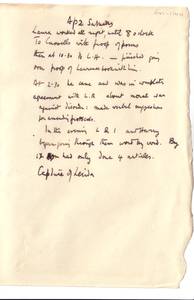 Apz Saturday
Laura worked all night until 8 o'clock
To Cassells with proof of poems
then at 10.30 to L.A. — finished going
over proof of Laura's book with him
At 2-30 he came and was in complete
agreement with L.R. about moral war
against disorder: made verbal suggestions
for amending protocols.
In the evening L & I and Harry
began going through them word by word. By
had only done 4 articles.
Capture of Lerida